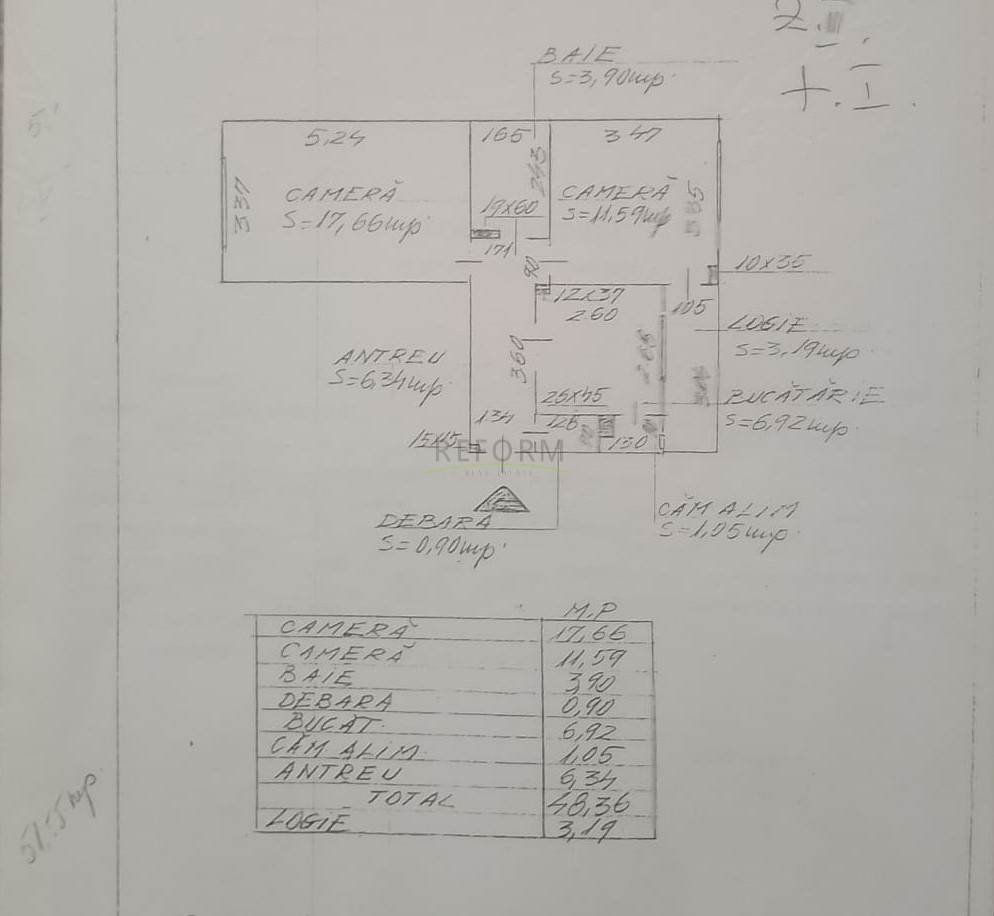 BAIE
S=3,90mp
+.I.
5,24
165
3 47
243
337
CAMERĂ
S=17,66mp
CAMERĂ
S=11,59mp
19x60
171
90
10x35
12x37
260
105
LOGIE
S=3,19mp
ANTREU
S=6,34mp
360
BUCĂTĂRIE
S=6,92mp
25x45
134
128
15x15
130
REFORM
REAL ESTATE
DEBARA
S=0,90mp
CĂM ALIM
S=1,05mp
M.P
CAMERĂ 17,66
CAMERĂ 11,59
BAIE 3,90
DEBARA 0,90
BUCĂT. 6,92
CĂM ALIM 1,05
ANTREU 6,34
TOTAL 48,36
LOGIE 3,19